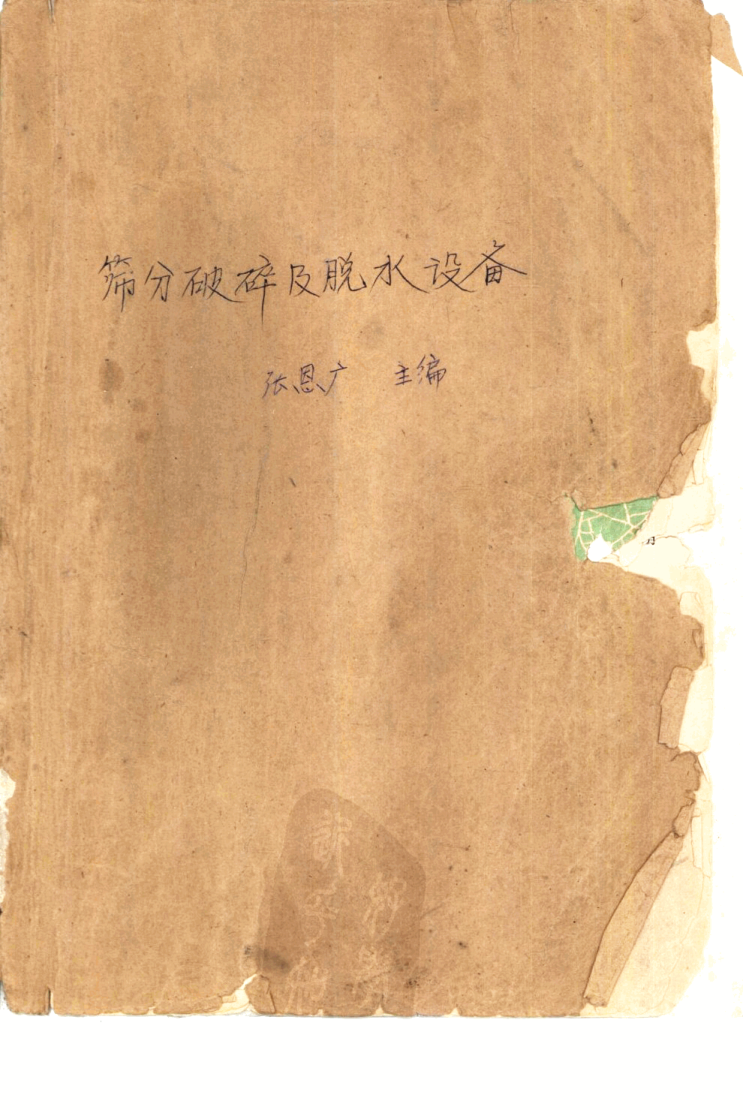 筛分破碎及脱水设备
张恩广 主编
月